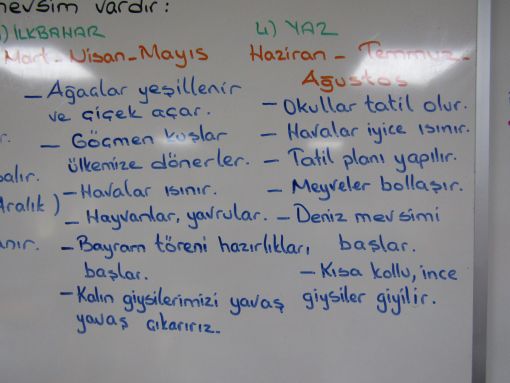 mevsim vardır:
) İLKBAHAR
Mart-Nisan-Mayıs
- Ağaçlar yeşillenir
ve çiçek açar.
- Göçmen kuşlar
ülkemize dönerler.
- Havalar ısınır.
- Hayvanlar, yavrular.
- Bayram töreni hazırlıkları
başlar.
- Kalın giysilerimizi yavaş
yavaş çıkarırız.
4) YAZ
Haziran - Temmuz-
Ağustos
- Okullar tatil olur.
- Havalar iyice ısınır.
- Tatil planı yapılır.
- Meyveler bollaşır.
- Deniz mevsimi
başlar.
- Kısa kollu, ince
giysiler giyilir.
Aralık )